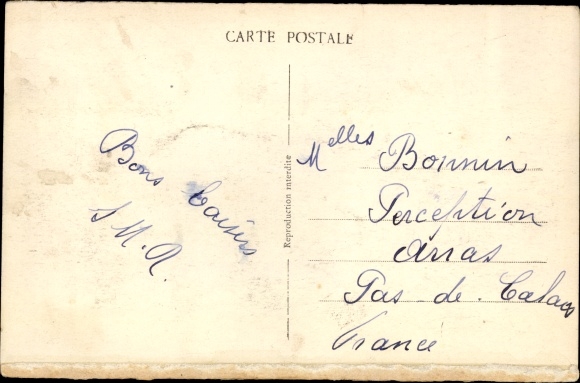 CARTE POSTALE
Bons baisers
S M.R.
Reproduction interdite
Melles Bonnin
Perception
Arras
Pas-de-Calais
France